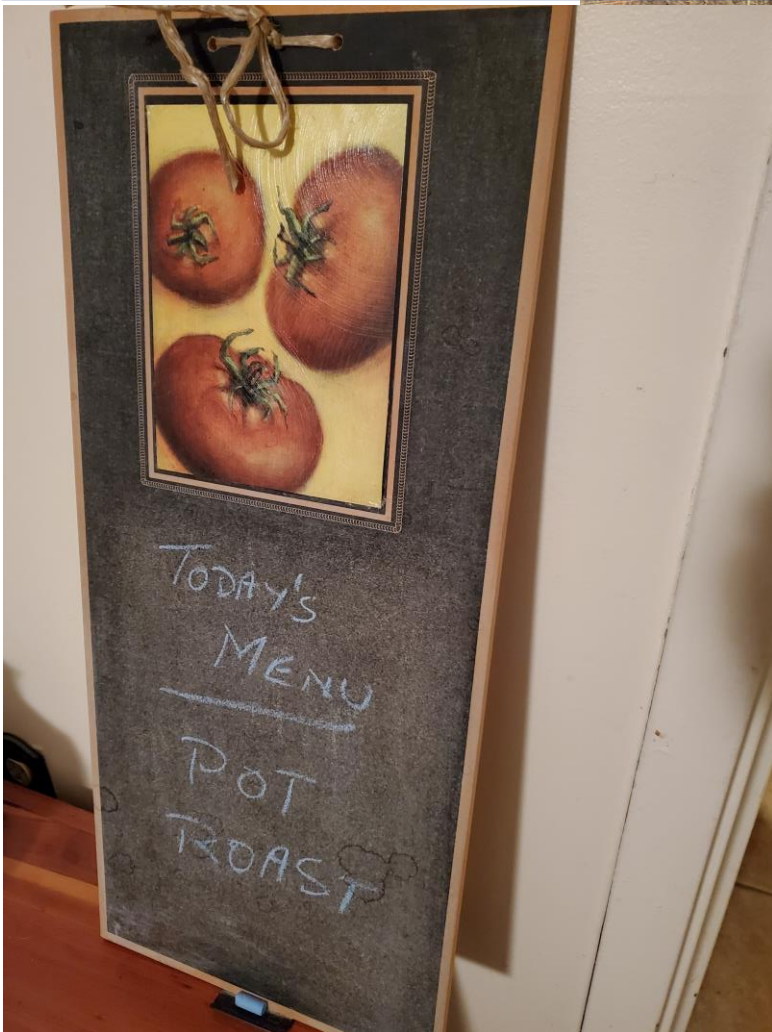 TODAY'S
MENU
POT
ROAST